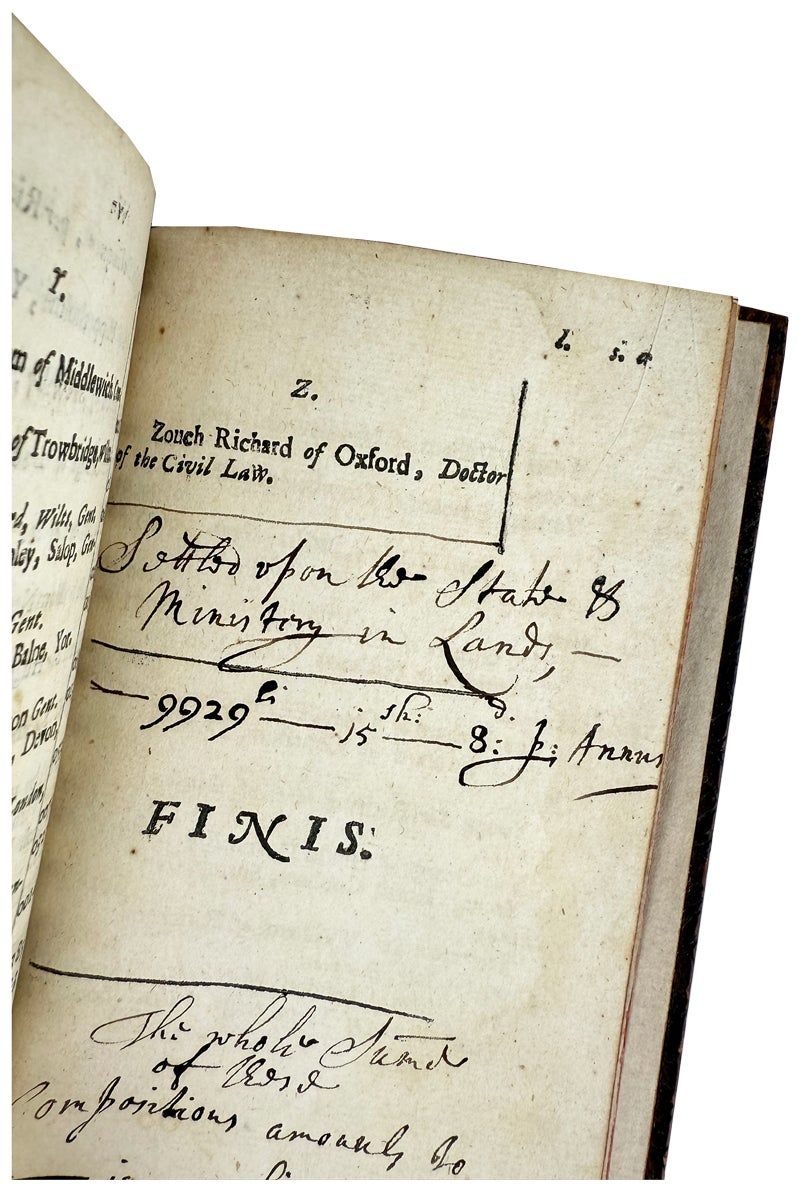 Y.
of Middlewich
of Trowbridge,
Wilts, Gent.
Salop, Gen-
Gent.
Balne, Yor-
on Gent.
Devon,
London,
l. s. d
Z.
Zouch Richard of Oxford, Doctor
of the Civil Law.
Settled vpon the State &
Ministery in Lands, —
— 9929 li — 15 sh: — 8: d. p: Annu
FINIS.
The whole Sume
of these
Compositions amounts to